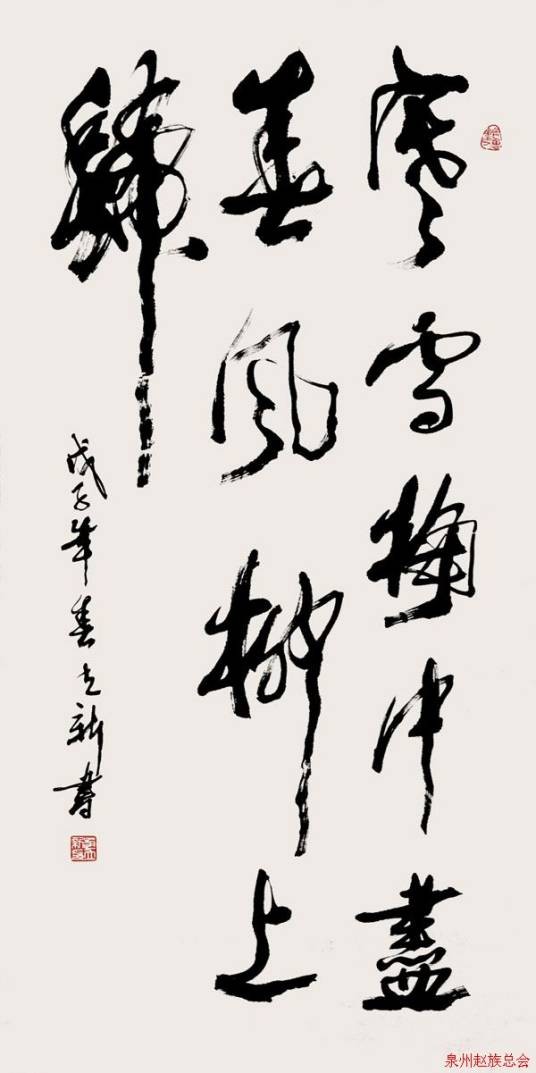 寒雪梅中盡
春風柳上
歸
戊子年春立新書
泉州赵族总会